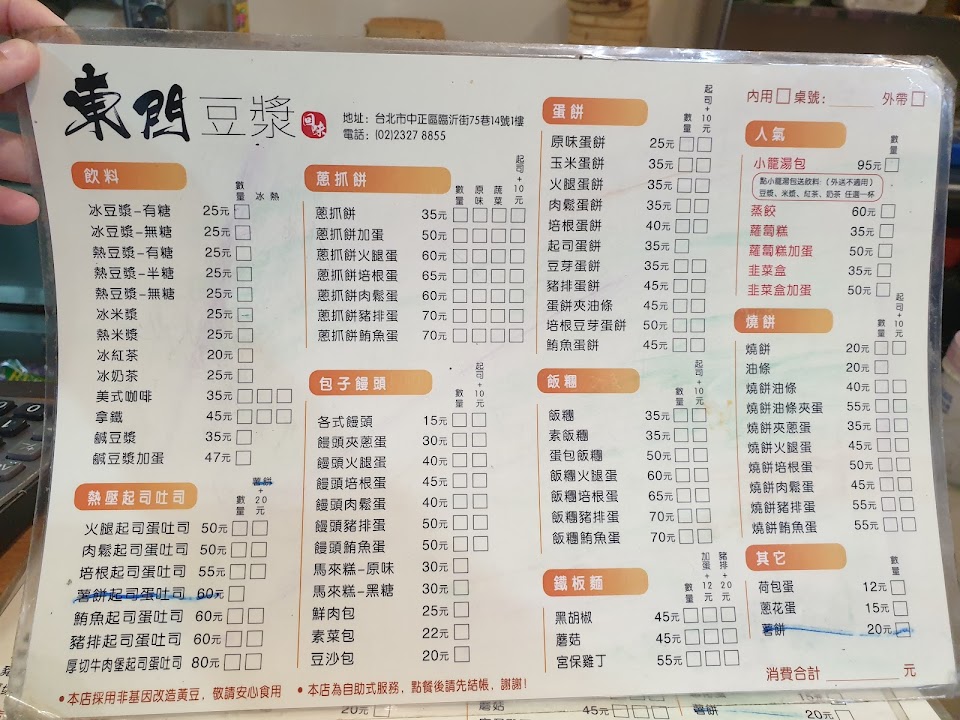 東門豆漿 回味
地址：台北市中正區臨沂街75巷14號1樓
電話：(02)2327 8855
內用□桌號：______ 外帶□
飲料
數量 冰 熱
冰豆漿-有糖 25元
冰豆漿-無糖 25元
熱豆漿-有糖 25元
熱豆漿-半糖 25元
熱豆漿-無糖 25元
冰米漿 25元
熱米漿 25元
冰紅茶 20元
冰奶茶 25元
美式咖啡 35元
拿鐵 45元
鹹豆漿 35元
鹹豆漿加蛋 47元
熱壓起司吐司
數量 薯餅+20元
火腿起司蛋吐司 50元
肉鬆起司蛋吐司 50元
培根起司蛋吐司 55元
薯餅起司蛋吐司 60元
鮪魚起司蛋吐司 60元
豬排起司蛋吐司 60元
厚切牛肉堡起司蛋吐司 80元
蔥抓餅
數量 原味 蔬菜 起司+10元
蔥抓餅 35元
蔥抓餅加蛋 50元
蔥抓餅火腿蛋 60元
蔥抓餅培根蛋 65元
蔥抓餅肉鬆蛋 60元
蔥抓餅豬排蛋 70元
蔥抓餅鮪魚蛋 70元
包子饅頭
數量 起司+10元
各式饅頭 15元
饅頭夾蔥蛋 30元
饅頭火腿蛋 40元
饅頭培根蛋 45元
饅頭肉鬆蛋 40元
饅頭豬排蛋 50元
饅頭鮪魚蛋 50元
馬來糕-原味 30元
馬來糕-黑糖 30元
鮮肉包 25元
素菜包 22元
豆沙包 20元
蛋餅
數量 起司+10元
原味蛋餅 25元
玉米蛋餅 35元
火腿蛋餅 35元
肉鬆蛋餅 35元
培根蛋餅 40元
起司蛋餅 35元
豆芽蛋餅 35元
豬排蛋餅 45元
蛋餅夾油條 45元
培根豆芽蛋餅 50元
鮪魚蛋餅 45元
飯糰
數量 起司+10元
飯糰 35元
素飯糰 35元
蛋包飯糰 50元
飯糰火腿蛋 60元
飯糰培根蛋 65元
飯糰豬排蛋 70元
飯糰鮪魚蛋 70元
鐵板麵
數量 加蛋+12元 豬排+20元
黑胡椒 45元
蘑菇 45元
宮保雞丁 55元
人氣
數量
小籠湯包 95元
點小籠湯包送飲料：(外送不適用)
豆漿、米漿、紅茶、奶茶 任選一杯
蒸餃 60元
蘿蔔糕 35元
蘿蔔糕加蛋 50元
韭菜盒 35元
韭菜盒加蛋 50元
燒餅
數量 起司+10元
燒餅 20元
油條 20元
燒餅油條 40元
燒餅油條夾蛋 55元
燒餅夾蔥蛋 35元
燒餅火腿蛋 45元
燒餅培根蛋 50元
燒餅肉鬆蛋 45元
燒餅豬排蛋 55元
燒餅鮪魚蛋 55元
其它
數量
荷包蛋 12元
蔥花蛋 15元
薯餅 20元
消費合計______元
•本店採用非基因改造黃豆，敬請安心食用 •本店為自助式服務，點餐後請先結帳，謝謝！
蘑菇 45元
薯餅 20元